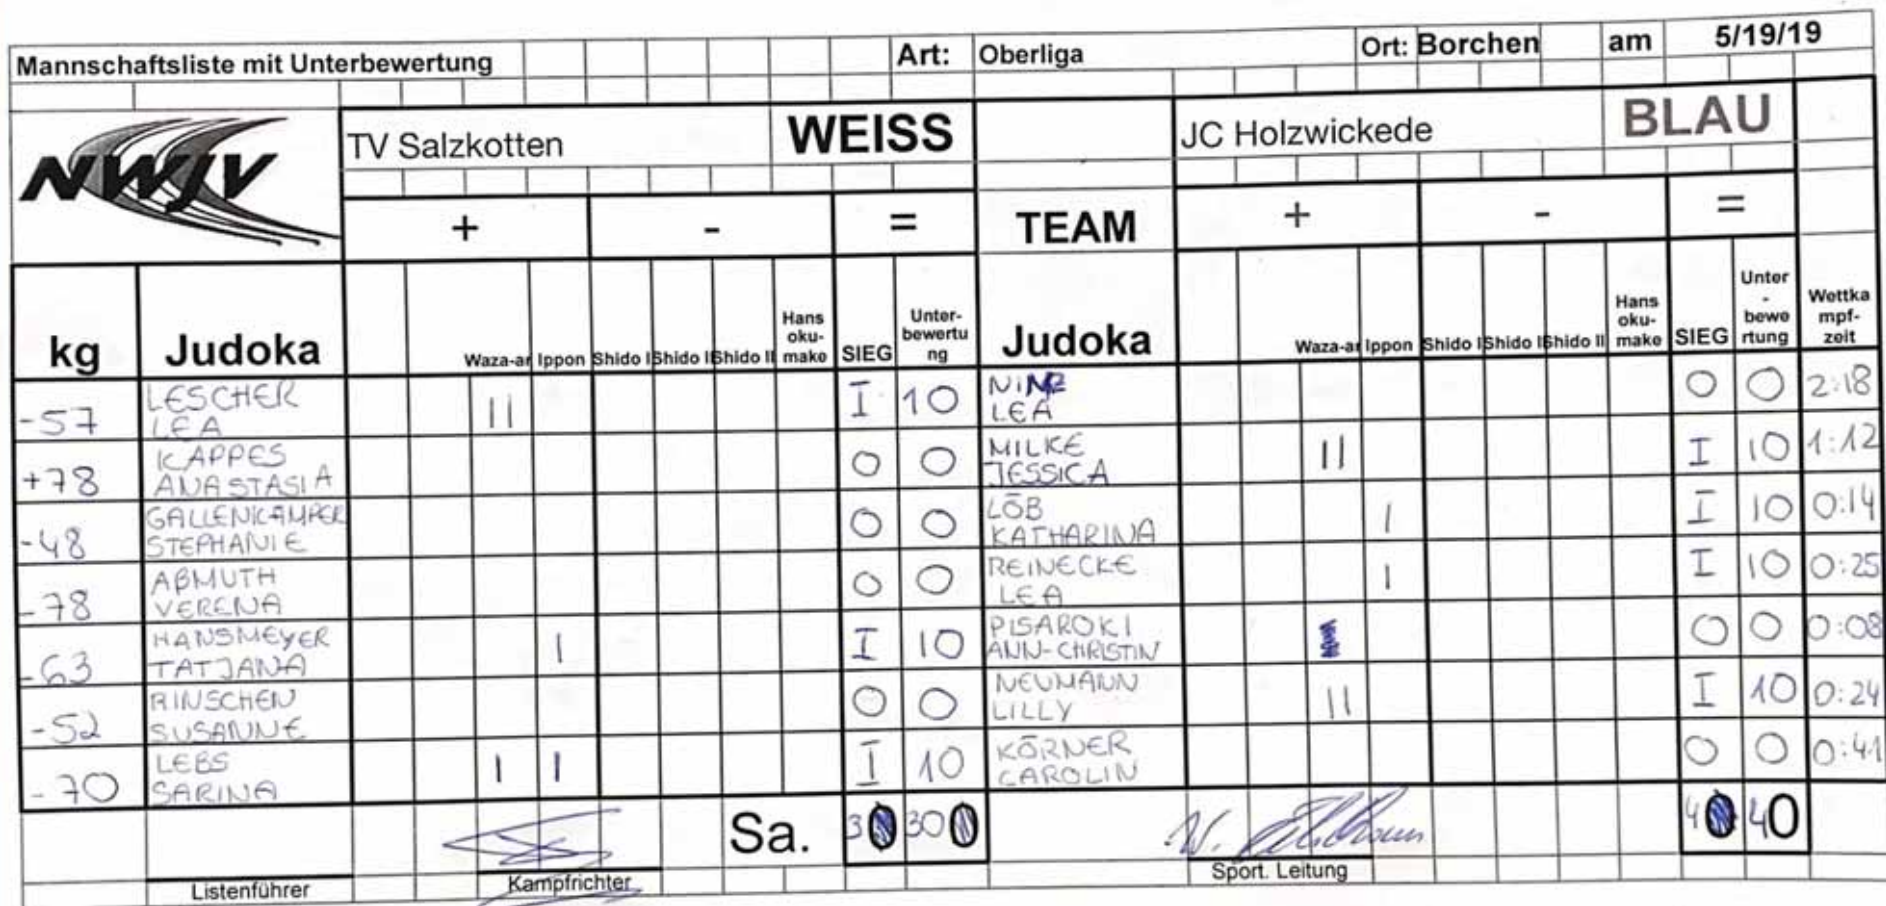 Mannschaftsliste mit Unterbewertung Art: Oberliga Ort: Borchen am 5/19/19
NWJV TV Salzkotten WEISS JC Holzwickede BLAU
+ - = TEAM + - =
kg Judoka Waza-ar Ippon Shido I Shido I Shido II Hans oku- make SIEG Unter- bewertu ng Judoka Waza-ar Ippon Shido I Shido I Shido II Hans oku- make SIEG Unter - bewe rtung Wettka mpf- zeit
-57 LESCHER LEA II I 10 LEA 0 0 2:18
+78 KAPPES ANASTASIA 0 0 MILKE JESSICA II I 10 1:12
-48 GALLENKAMPER STEPHANIE 0 0 LÖB KATHARINA I I 10 0:14
-78 ABMUTH VERENA 0 0 REINECKE LEA I I 10 0:25
-63 HANSMEYER TATJANA I I 10 PISAROKI ANN-CHRISTIN 0 0 0:08
-52 RINSCHEN SUSANNE 0 0 NEUMANN LILLY II I 10 0:24
-70 LEBS SARINA I I I 10 KÖRNER CAROLIN 0 0 0:41
Sa. 3 30 4 40
Listenführer Kampfrichter Sport. Leitung